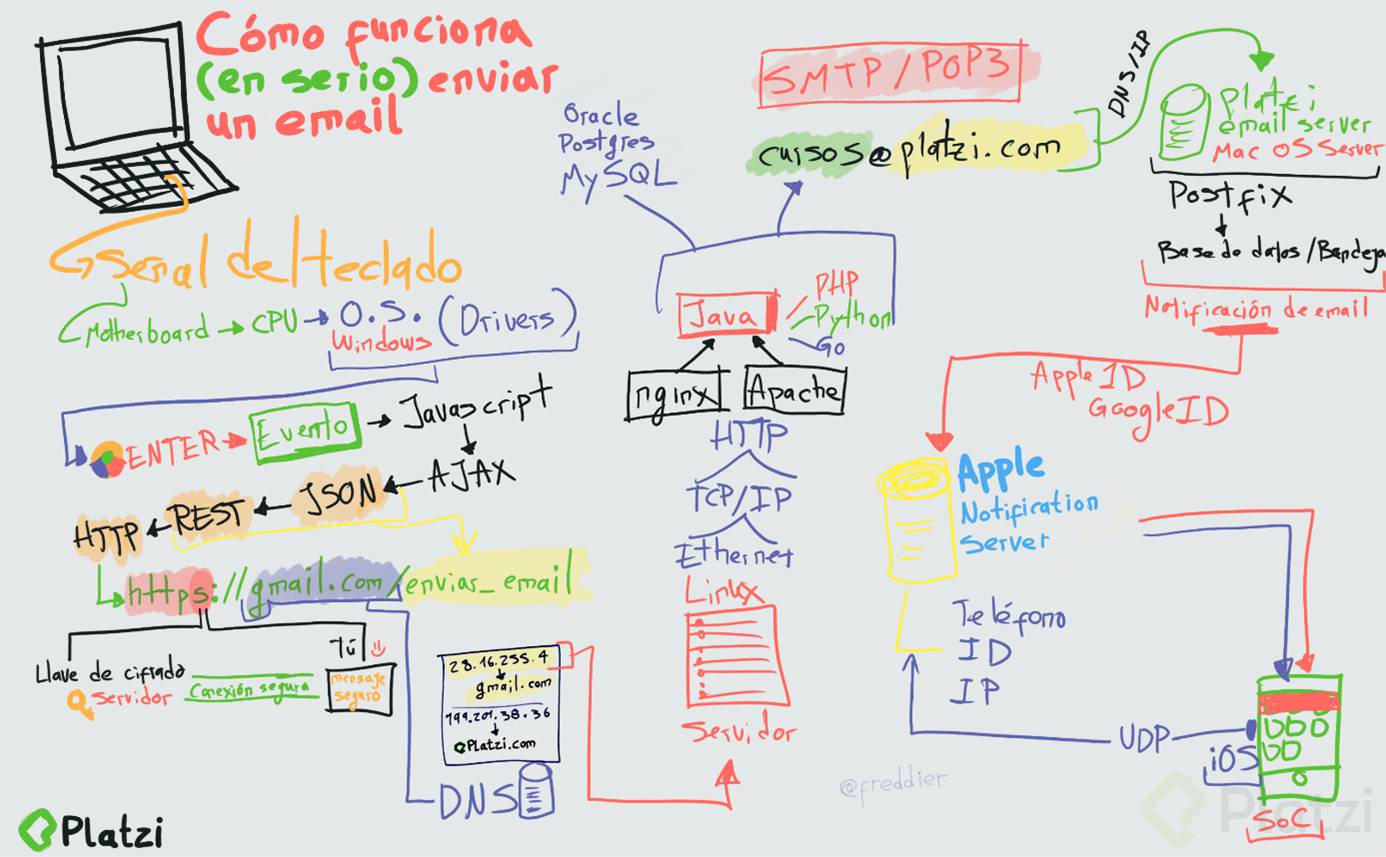 Cómo funciona
(en serio) enviar
un email
Señal del teclado
Motherboard → CPU → O.S. (Drivers)
Windows
ENTER → Evento → Javascript
AJAX
JSON
REST
HTTP
https://gmail.com/enviar_email
Llave de cifrado
Servidor
Conexión segura
Tú
mensaje
seguro
28.16.255.4
gmail.com
199.201.38.36
Platzi.com
DNS
Oracle
Postgres
MySQL
Java
PHP
Python
Go
nginx
Apache
HTTP
TCP/IP
Ethernet
Linux
Servidor
SMTP / POP3
cursos@platzi.com
DNS/IP
platzi
email server
Mac OS Server
Postfix
Base de datos /Bandeja
Notificación de email
Apple ID
Google ID
Apple
Notification
Server
Teléfono
ID
IP
UDP
iOS
SoC
@freddier
Platzi
Platzi